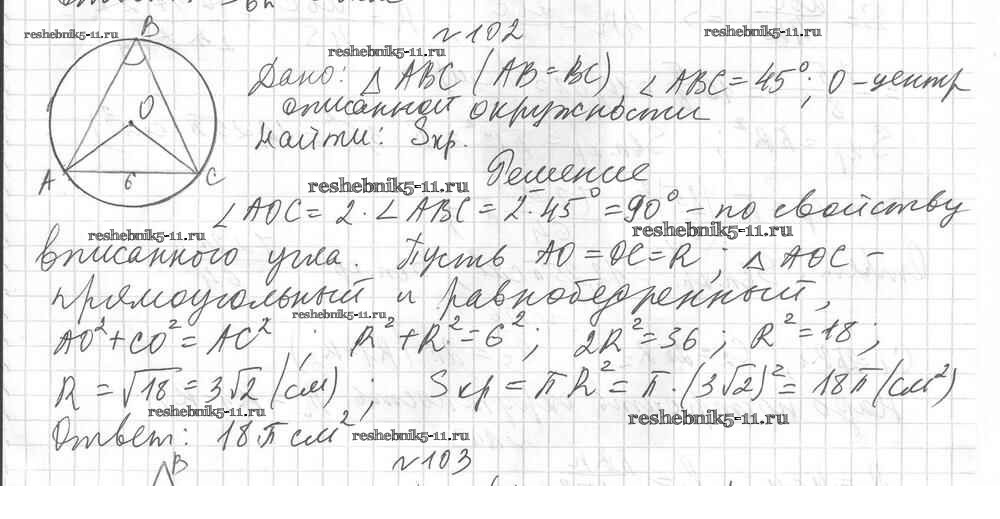 reshebnik5-11.ru
N 102
reshebnik5-11.ru
reshebnik5-11.ru
B
O
A
6
C
Дано: △ ABC (AB=BC), ∠ABC=45°; O-центр
описанной окружности
Найти: Sкр.
Решение
reshebnik5-11.ru
∠AOC = 2·∠ABC = 2·45° = 90° - по свойству
reshebnik5-11.ru
reshebnik5-11.ru
вписанного угла. Пусть AO=OC=R; △ AOC -
прямоугольный и равнобедренный,
reshebnik5-11.ru
AO²+CO²=AC²; R²+R²=6²; 2R²=36; R²=18;
R=√18=3√2 (см); Sкр=πR²=π·(3√2)²=18π(см²)
reshebnik5-11.ru
reshebnik5-11.ru
Ответ: 18π см²
reshebnik5-11.ru
N 103
B